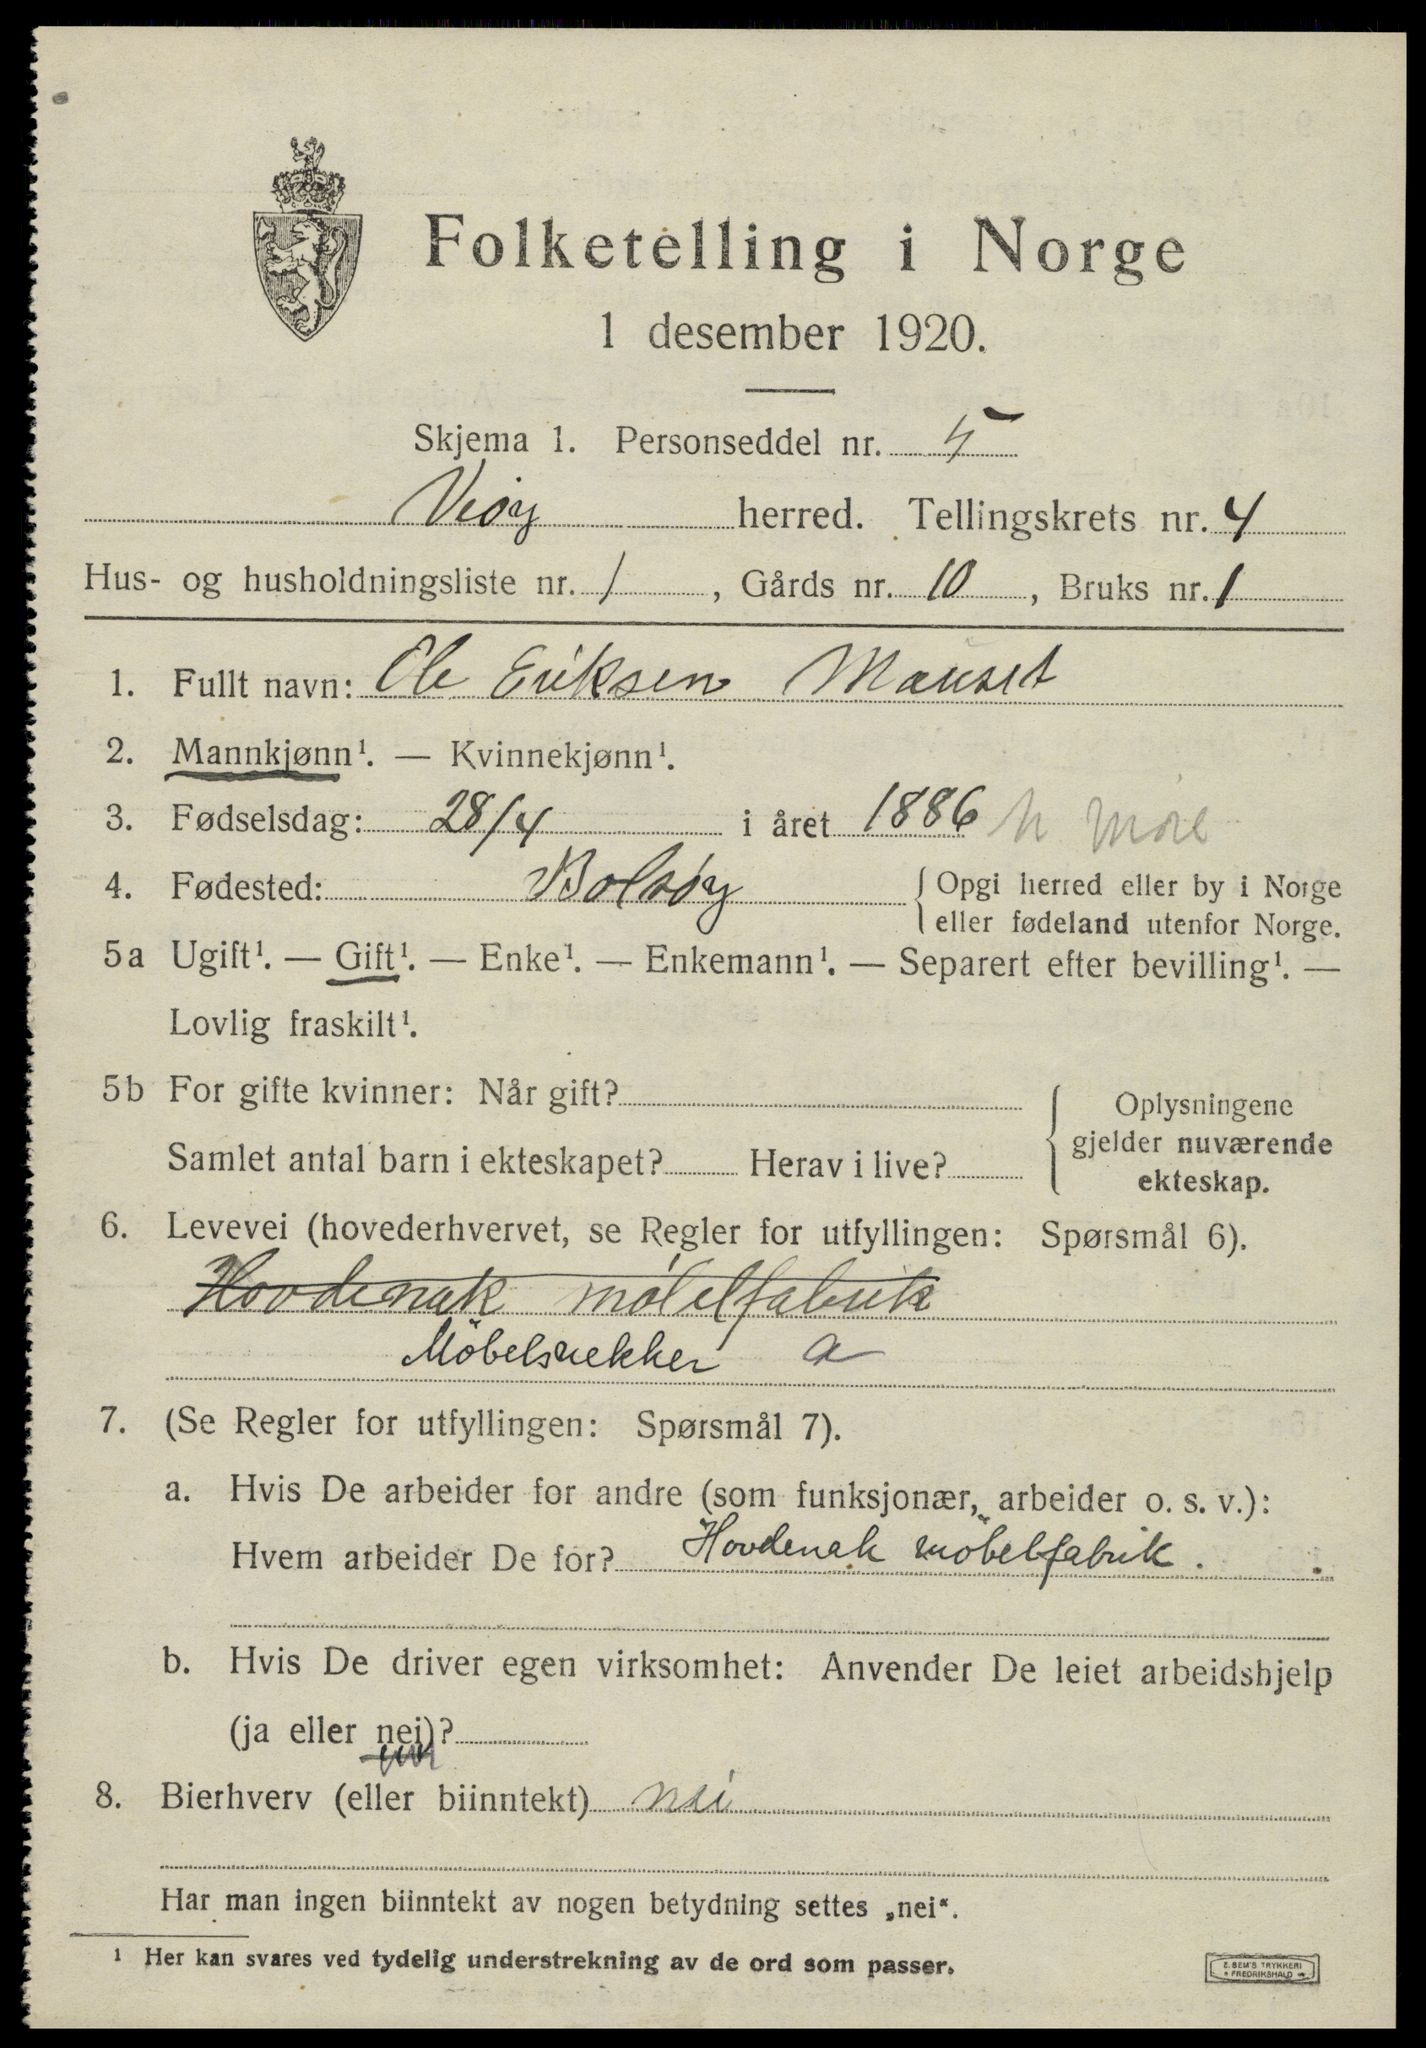 Folketelling i Norge
1 desember 1920.
Skjema 1. Personseddel nr. 5
Veøy herred. Tellingskrets nr. 4
Hus- og husholdningsliste nr. 1, Gårds nr. 10, Bruks nr. 1
1. Fullt navn: Ole Eriksen Mauset
2. Mannkjønn¹. — Kvinnekjønn¹.
3. Fødselsdag: 28/4 i året 1886 N Møre
4. Fødested: Bolsøy {Opgi herred eller by i Norge
eller fødeland utenfor Norge.
5a Ugift¹. — Gift¹. — Enke¹. — Enkemann¹. — Separert efter bevilling¹. —
Lovlig fraskilt¹.
5b For gifte kvinner: Når gift?
Samlet antal barn i ekteskapet? Herav i live?
Oplysningene
gjelder nuværende
ekteskap.
6. Levevei (hovederhvervet, se Regler for utfyllingen: Spørsmål 6).
Hovdenak møbelfabrik
Möbelsnekker a
7. (Se Regler for utfyllingen: Spørsmål 7).
a. Hvis De arbeider for andre (som funksjonær, arbeider o. s. v.):
Hvem arbeider De for? Hovdenak möbelfabrik.
b. Hvis De driver egen virksomhet: Anvender De leiet arbeidshjelp
(ja eller nei)?
8. Bierhverv (eller biinntekt) nei
Har man ingen biinntekt av nogen betydning settes „nei".
¹ Her kan svares ved tydelig understrekning av de ord som passer.
E. SEM'S TRYKKERI
FREDRIKSHALD